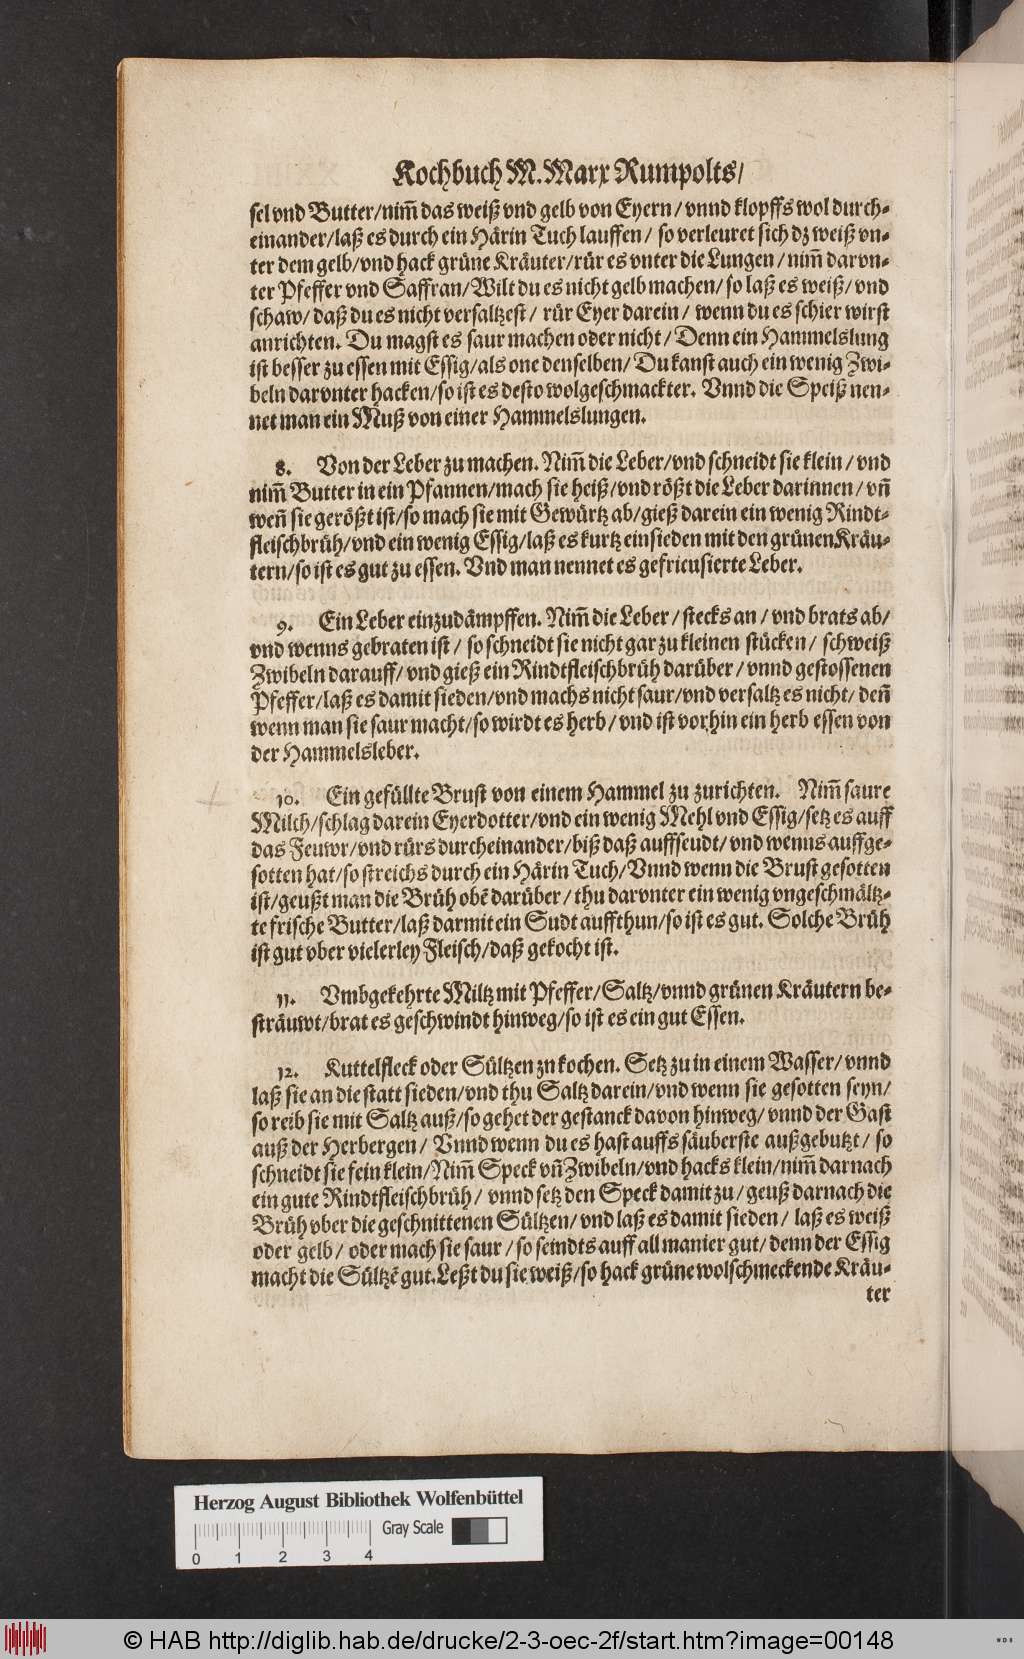 Kochbuch M. Marx Rumpolts/
sel vnd Butter/nim̃ das weiß vnd gelb von Eyern/vnnd klopffs wol durch-
einander/laß es durch ein Härin Tuch lauffen/ so verleuret sich dz weiß vn-
ter dem gelb/vnd hack grüne Kräuter/rür es vnter die Lungen/nim̃ darvn-
ter Pfeffer vnd Saffran/Wilt du es nicht gelb machen/so laß es weiß/vnd
schaw/daß du es nicht versaltzest/ rür Eyer darein/ wenn du es schier wirst
anrichten. Du magst es saur machen oder nicht/Denn ein Hammelslung
ist besser zu essen mit Essig/als one denselben/Du kanst auch ein wenig Zwi-
beln darvnter hacken/so ist es desto wolgeschmackter. Vnnd die Speiß nen-
net man ein Muß von einer Hammelslungen.
8. Von der Leber zu machen. Nim̃ die Leber/vnd schneidt sie klein/vnd
nim̃ Butter in ein Pfannen/mach sie heiß/vnd rößt die Leber darinnen/vñ
weñ sie gerößt ist/so mach sie mit Gewürtz ab/gieß darein ein wenig Rindt-
fleischbrüh/vnd ein wenig Essig/laß es kurtz einsieden mit den grünen Kräu-
tern/so ist es gut zu essen. Vnd man nennet es gefricusierte Leber.
9. Ein Leber einzudämpffen. Nim̃ die Leber/stecks an/vnd brats ab/
vnd wenns gebraten ist/ so schneidt sie nicht gar zu kleinen stücken/ schweiß
Zwibeln darauff/vnd gieß ein Rindtfleischbrüh darüber/vnnd gestossenen
Pfeffer/laß es damit sieden/vnd machs nicht saur/vnd versaltz es nicht/ deñ
wenn man sie saur macht/so wirdt es herb/vnd ist vorhin ein herb essen von
der Hammelsleber.
10. Ein gefüllte Brust von einem Hammel zu zurichten. Nim̃ saure
Milch/schlag darein Eyerdotter/vnd ein wenig Mehl vnd Essig/setz es auff
das Feuwr/vnd rürs durcheinander/biß daß auffseudt/vnd wenns auffge-
sotten hat/so streichs durch ein Härin Tuch/Vnnd wenn die Brust gesotten
ist/geußt man die Brüh obẽ darüber/thu darvnter ein wenig vngeschmältz-
te frische Butter/laß darmit ein Sudt auffthun/so ist es gut. Solche Brüh
ist gut vber vielerley Fleisch/daß gekocht ist.
11. Vmbgekehrte Miltz mit Pfeffer/Saltz/vnnd grünen Kräutern be-
sträuwt/brat es geschwindt hinweg/so ist es ein gut Essen.
12. Kuttelfleck oder Sültzen zn kochen. Setz zu in einem Wasser/vnnd
laß sie an die statt sieden/vnd thu Saltz darein/vnd wenn sie gesotten seyn/
so reib sie mit Saltz auß/so gehet der gestanck davon hinweg/vnnd der Gast
auß der Herbergen/ Vnnd wenn du es hast auffs säuberste außgebutzt/ so
schneidt sie fein klein/Nim̃ Speck vñ Zwibeln/vnd hacks klein/nim̃ darnach
ein gute Rindtfleischbrüh/ vnnd setz den Speck damit zu/geuß darnach die
Brüh vber die geschnittenen Sültzen/vnd laß es damit sieden/ laß es weiß
oder gelb/ oder mach sie saur/so seindts auff all manier gut/denn der Essig
macht die Sültzẽ gut. Leßt du sie weiß/so hack grüne wolschmeckende Kräu-
ter
Herzog August Bibliothek Wolfenbüttel
Gray Scale
0 1 2 3 4
© HAB http://diglib.hab.de/drucke/2-3-oec-2f/start.htm?image=00148